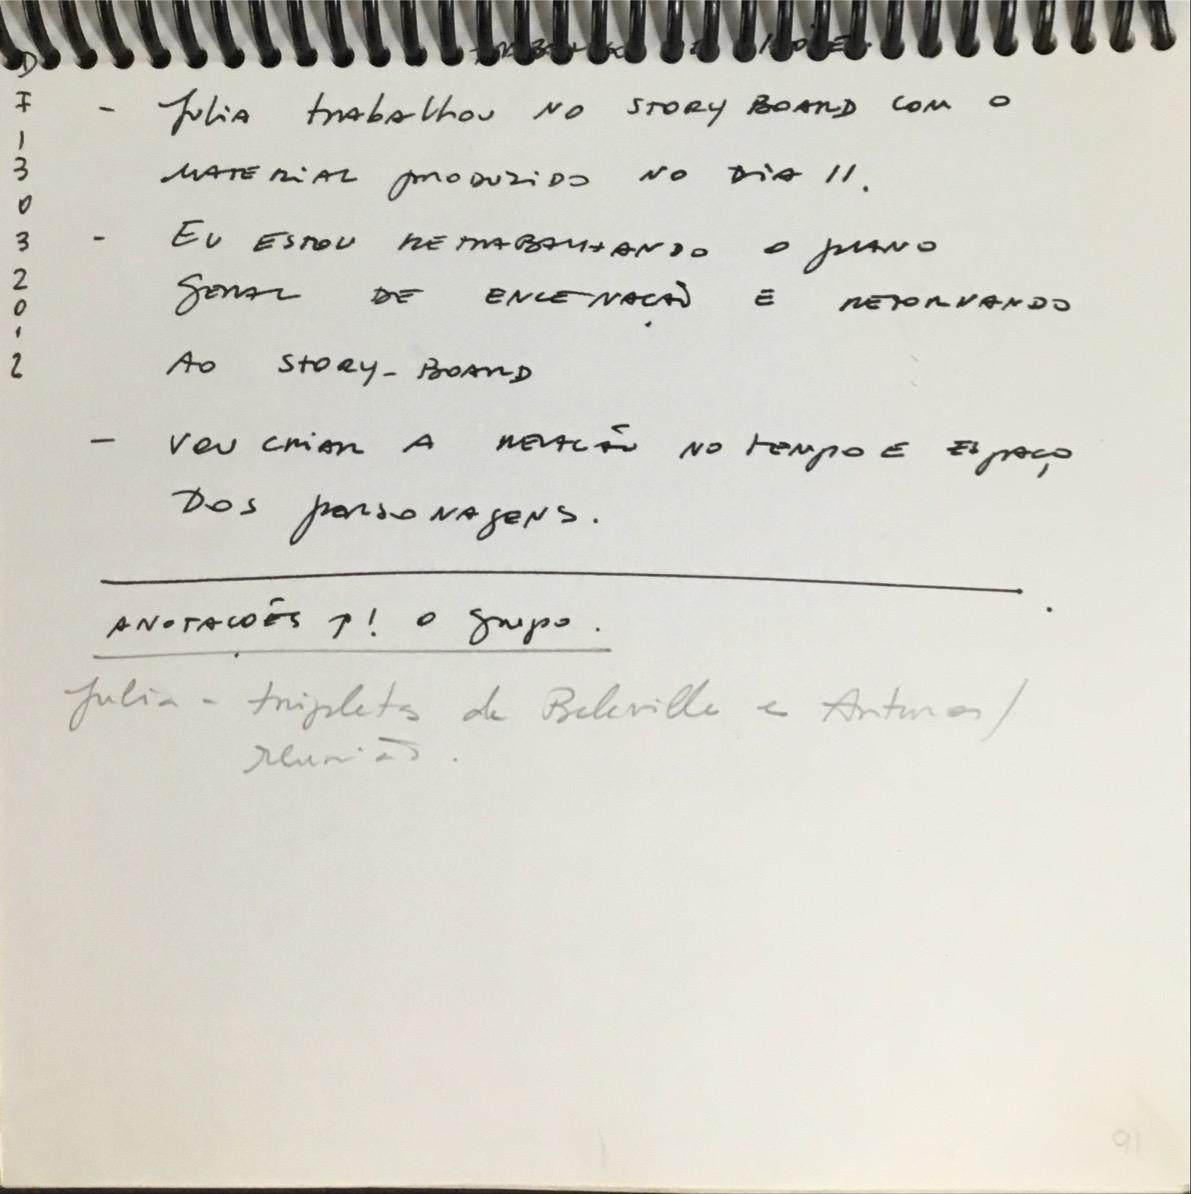 Julia trabalhou no STORY BOARD com o
MATERIAL produzido no DIA 11.
- EU ESTOU RETRABALHANDO o plano
GERAL DE ENCENAÇÃO E RETORNANDO
AO STORY-BOARD
- VOU CRIAR A RELAÇÃO NO TEMPO E ESPAÇO
DOS personagens.
ANOTAÇÕES P! O grupo.
Julia - tripletas de Belleville e Antunes/
reunião.
91